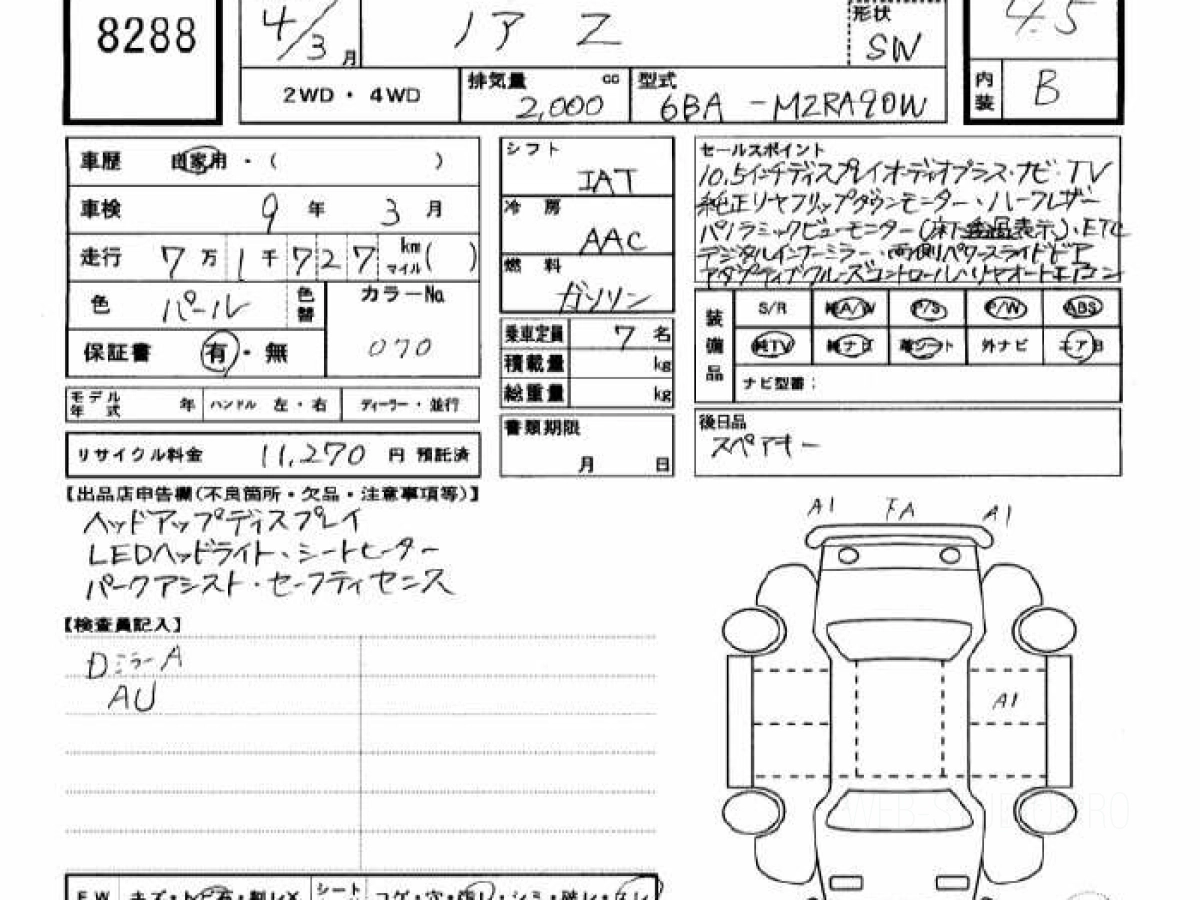 8288
4/3 月
ノア Z
形状
SW
4.5
2WD・4WD
排気量 cc
2,000
型式
6BA-MZRA90W
内装 B
車歴 自家用・( )
車検 9年 3月
走行 7万1千727 km マイル( )
色 パール 色替
カラーNo.
070
保証書 有・無
モデル年式 年 ハンドル 左・右 ディーラー・並行
リサイクル料金 11,270 円 預託済
シフト
IAT
冷房
AAC
燃料
ガソリン
乗車定員 7 名
積載量 kg
総重量 kg
書類期限
月 日
セールスポイント
10.5インチディスプレイオーディオプラス・ナビ・TV
純正リヤフリップダウンモニター、ハーフレザー
パノラミックビューモニター(床下透過表示)、ETC
デジタルインナーミラー、両側パワースライドドア
アダプティブクルーズコントロール、リヤオートエアコン
装備品
S/R 純A/W P/S P/W ABS
純TV 純ナビ 革シート 外ナビ エアB
ナビ型番:
後日品
スペアキー
【出品店申告欄(不良箇所・欠品・注意事項等)】
ヘッドアップディスプレイ
LEDヘッドライト、シートヒーター
パークアシスト・セーフティセンス
【検査員記入】
DミラーA
AU
A1 A1
A1
FW キズ・トビ石・割レX シート コゲ・穴・・シミ・破レ・スレ